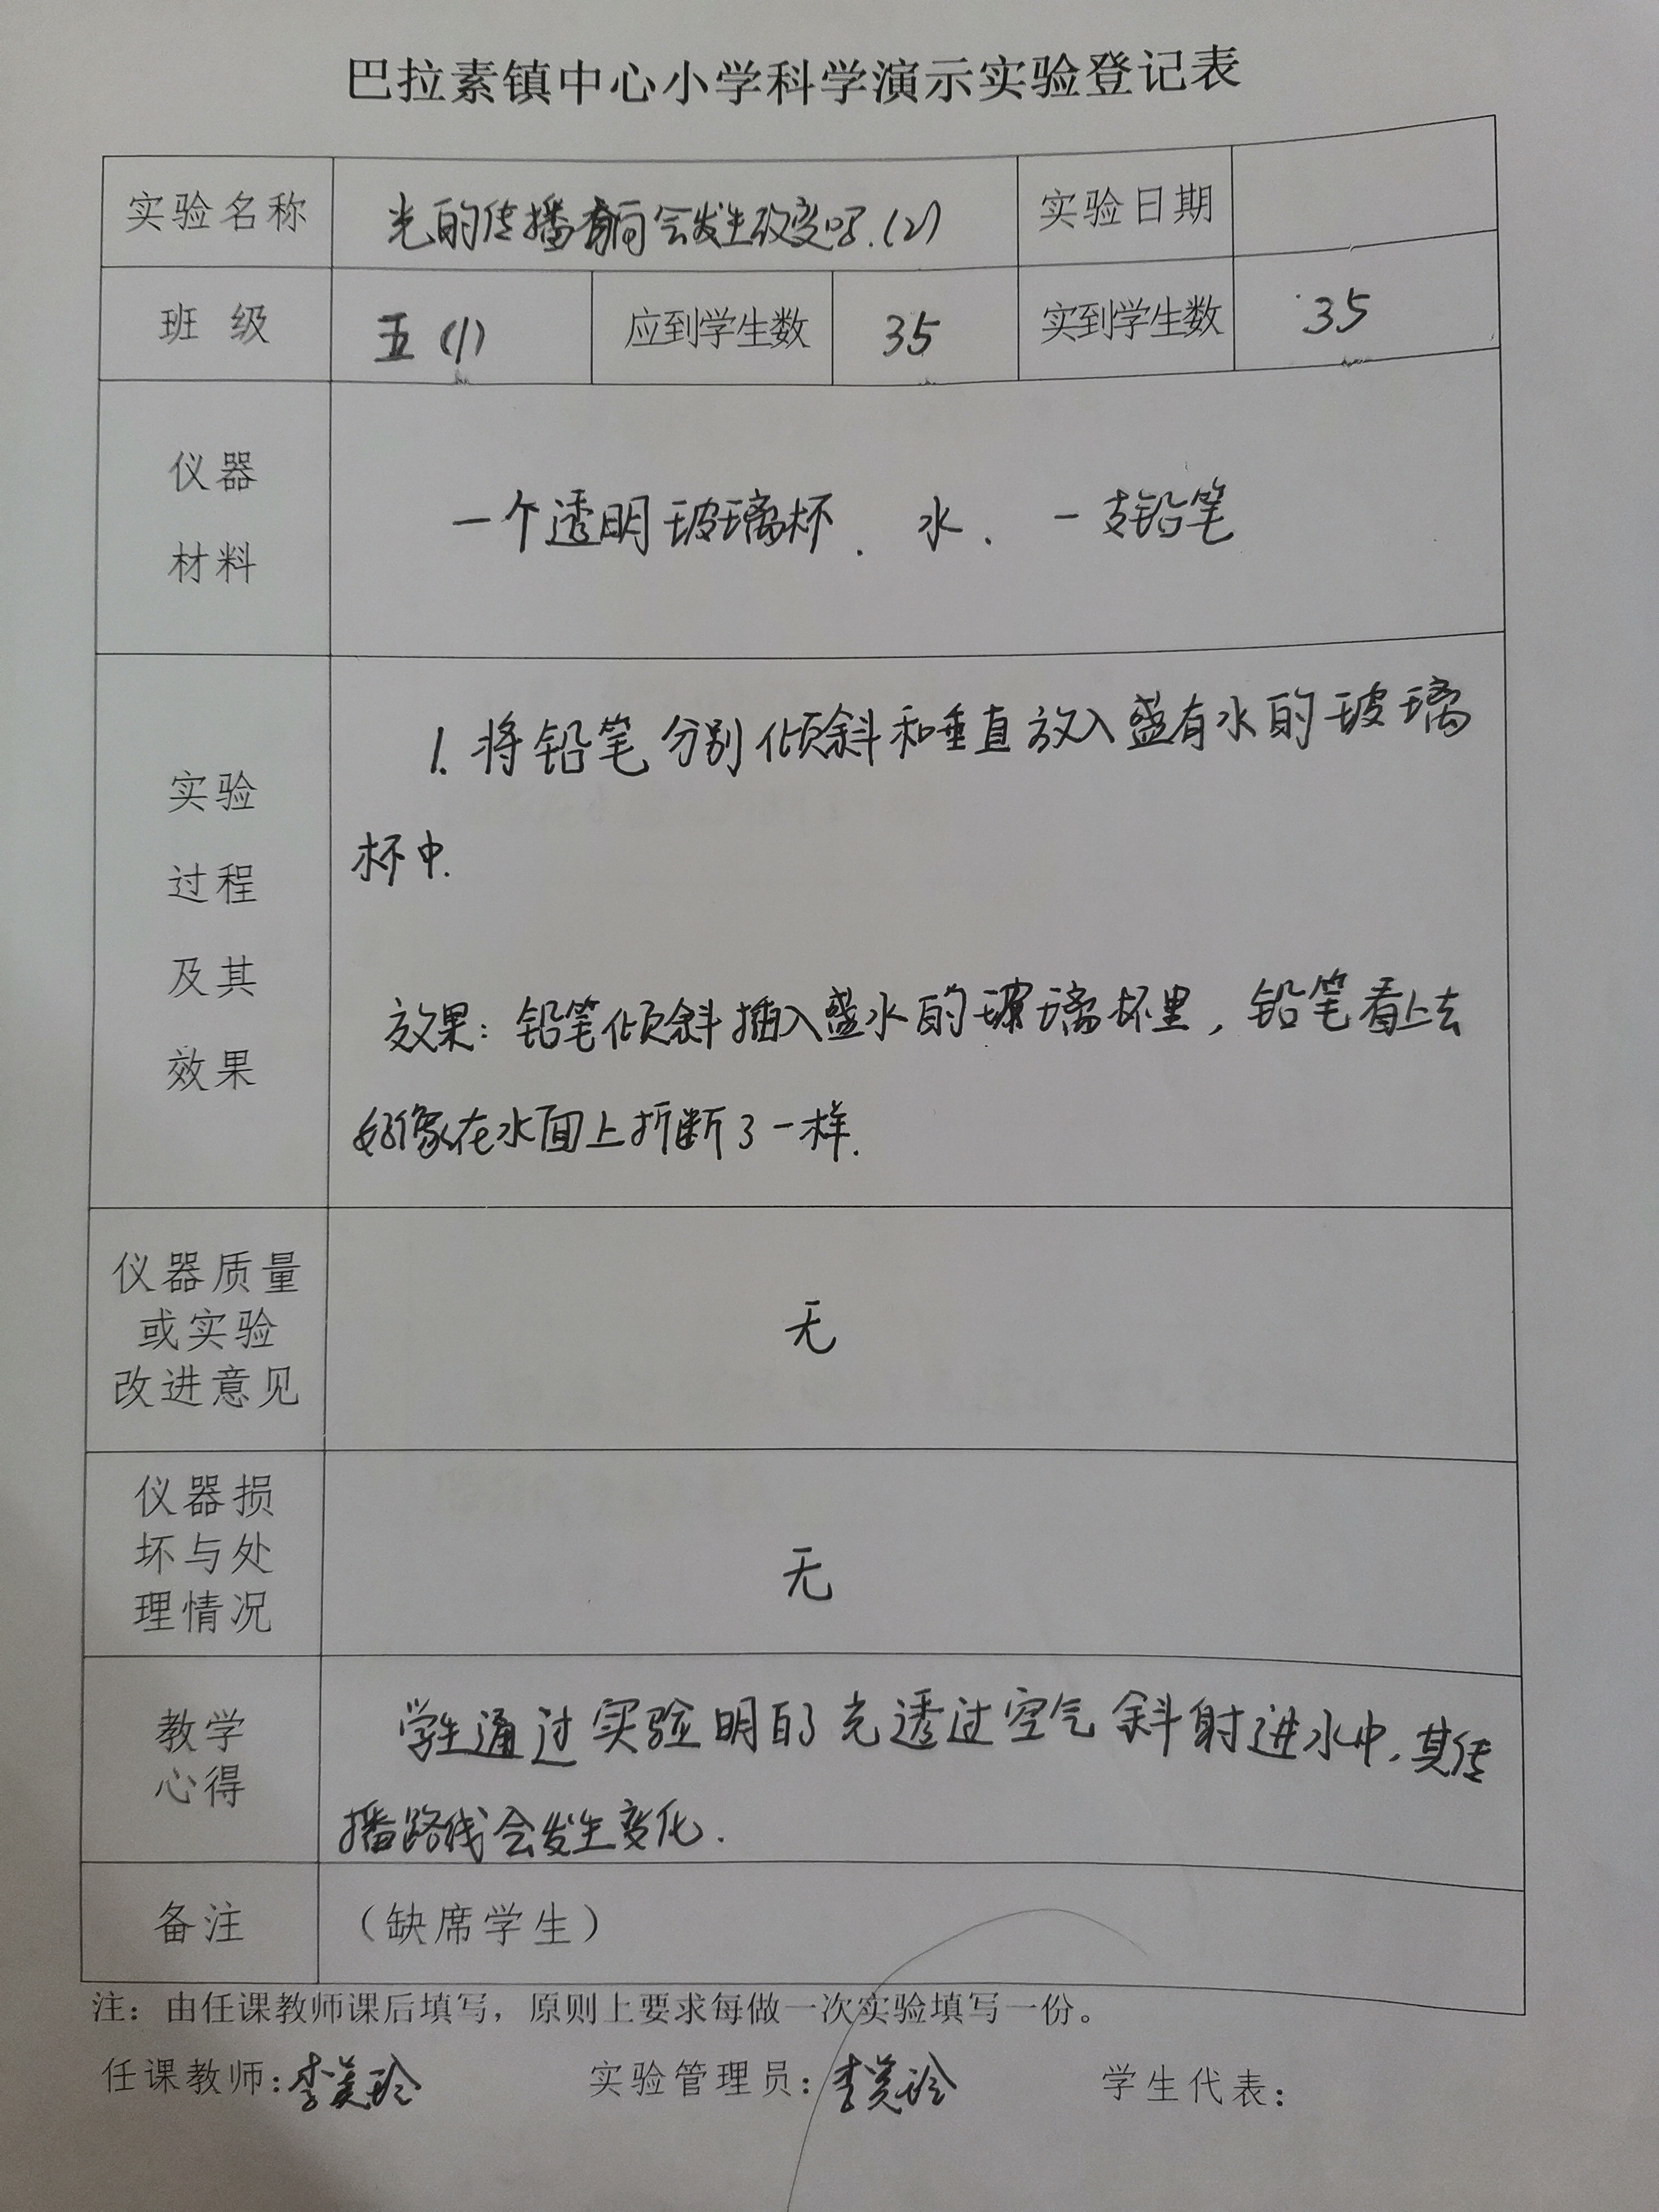 巴拉素镇中心小学科学演示实验登记表
实验名称 光的传播方向会发生改变吗.(2) 实验日期
班级 五(1) 应到学生数 35 实到学生数 35
仪器
材料
一个透明玻璃杯. 水. 一支铅笔
实验
过程
及其
效果
1. 将铅笔分别倾斜和垂直放入盛有水的玻璃
杯中.
效果: 铅笔倾斜插入盛水的玻璃杯里, 铅笔看上去
好像在水面上折断了一样.
仪器质量
或实验
改进意见
无
仪器损
坏与处
理情况
无
教学
心得
学生通过实验明白了光透过空气斜射进水中, 其传
播路线会发生变化.
备注 （缺席学生）
注：由任课教师课后填写，原则上要求每做一次实验填写一份。
任课教师：李美玲 实验管理员：李美玲 学生代表：